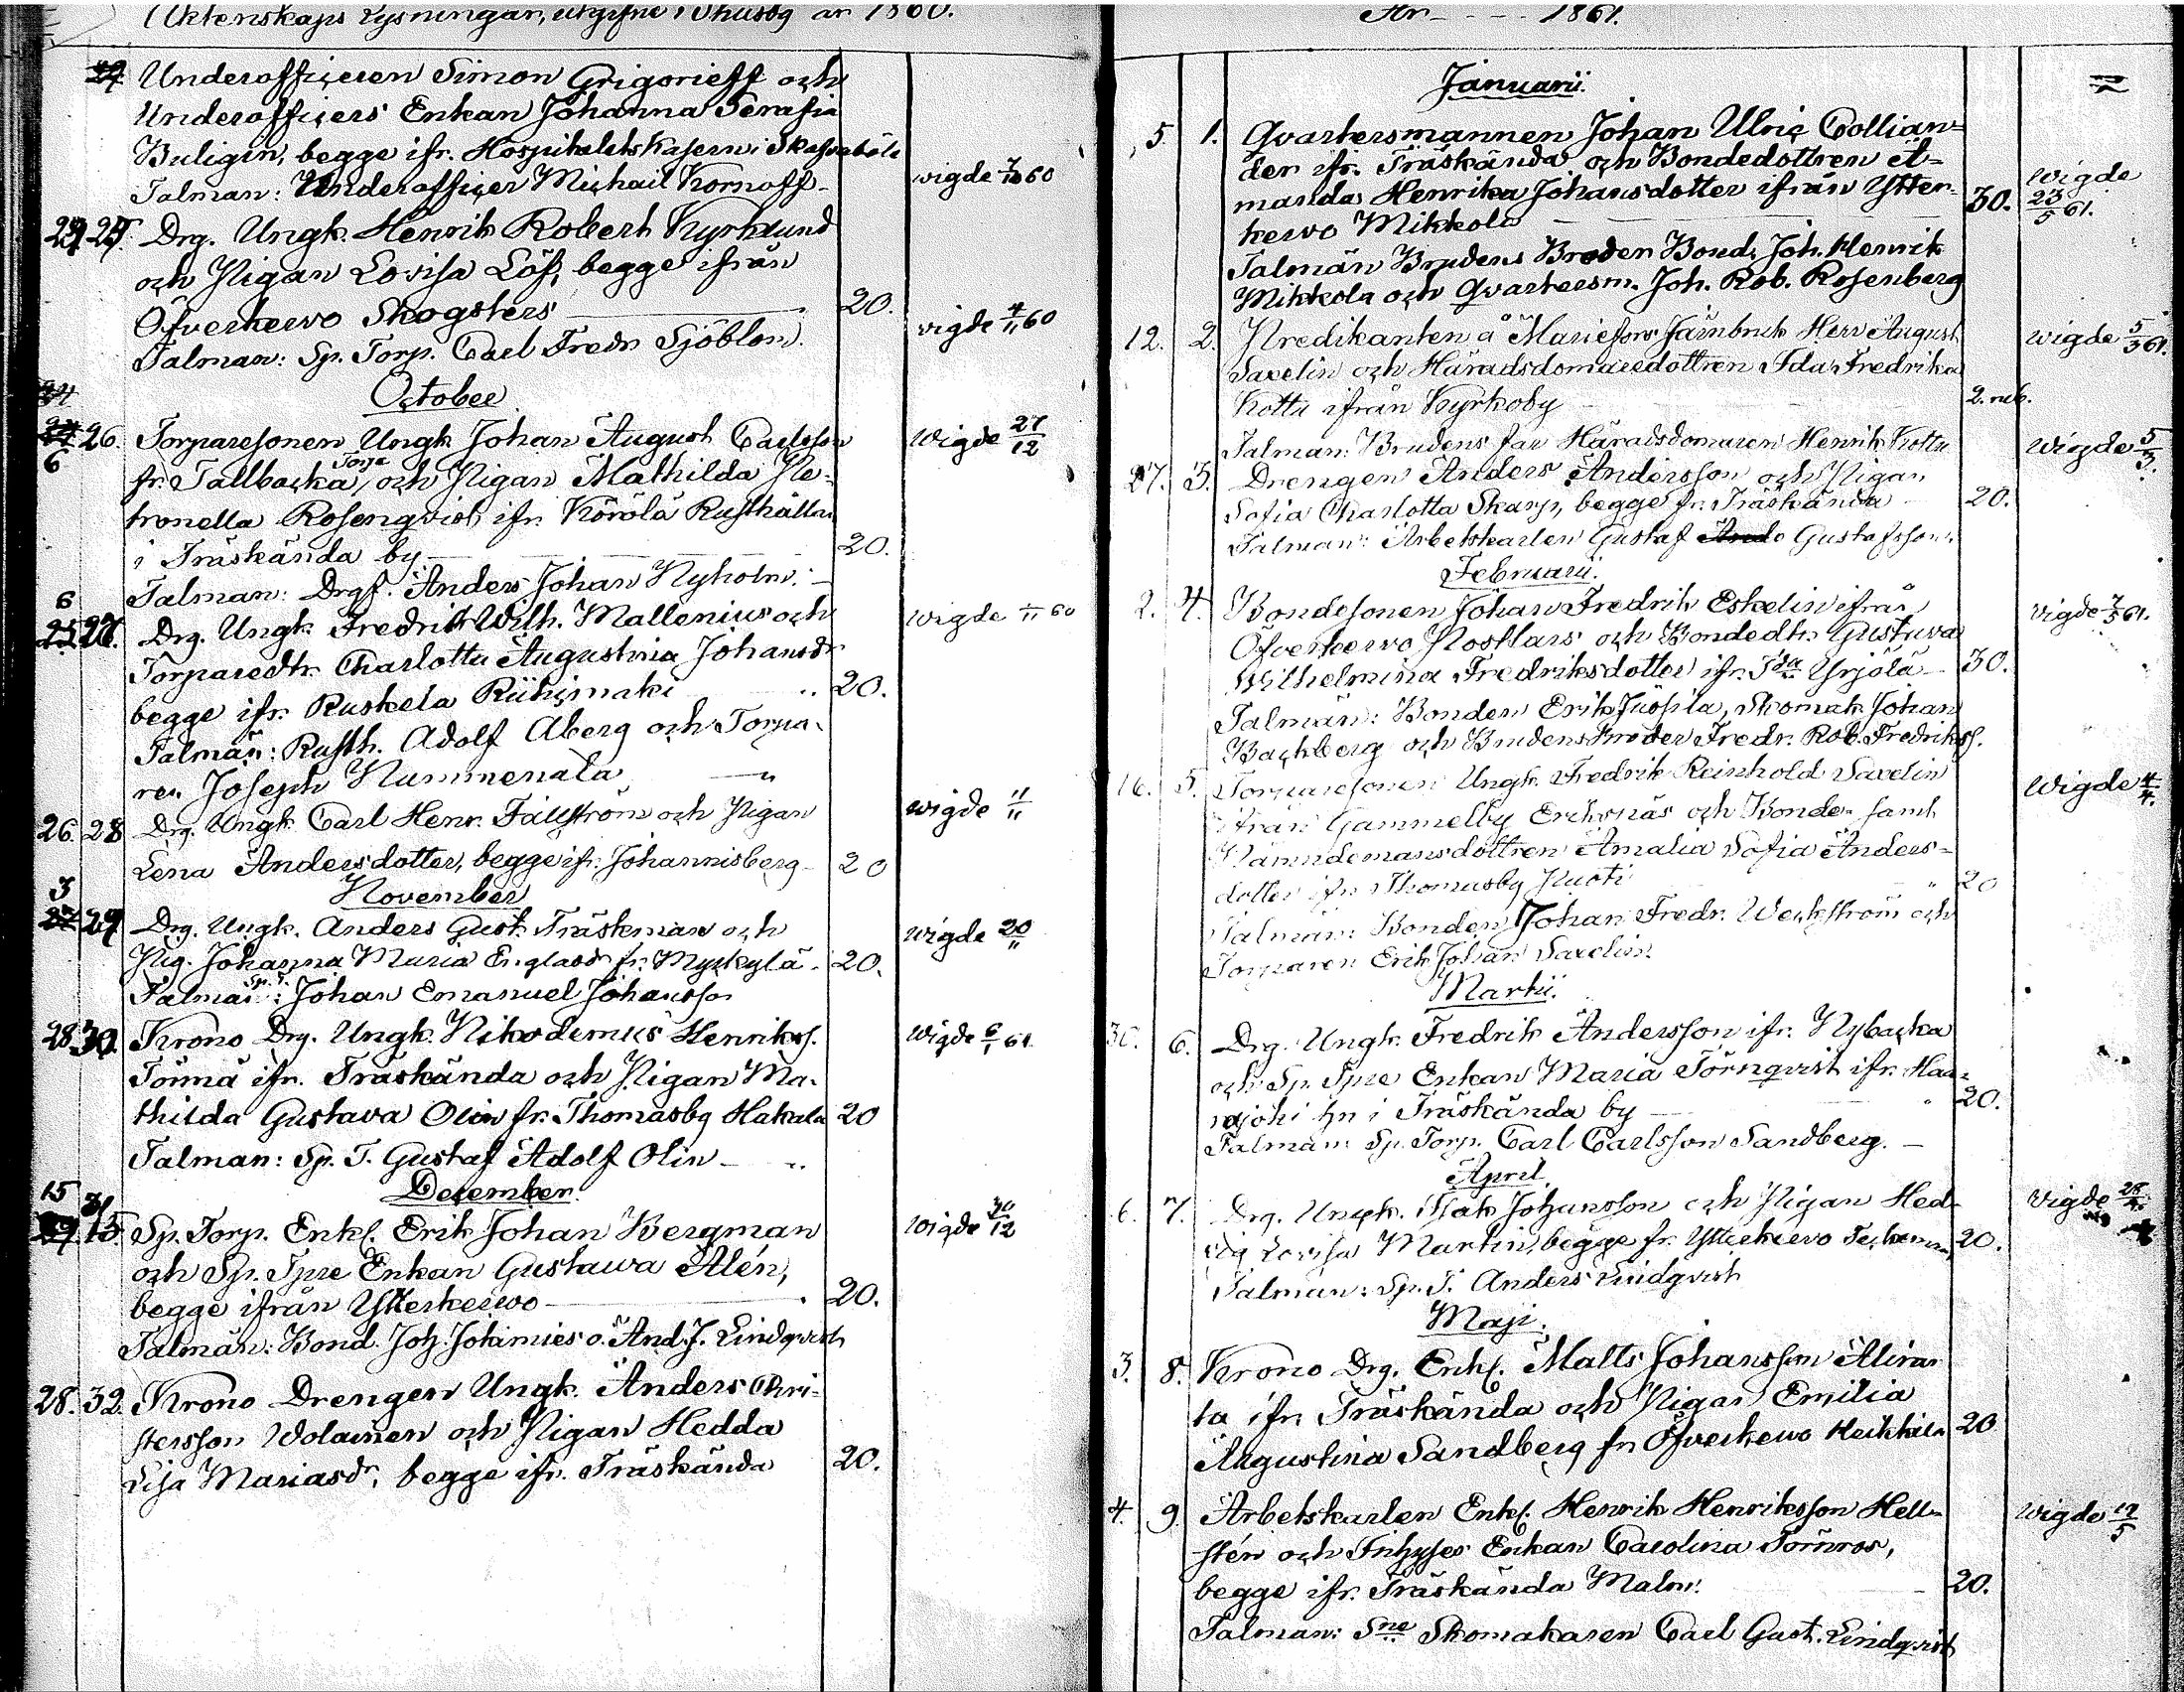 Äktenskaps Lysningar, utgifne i Thusby år 1860.
Underofficeren Simon Grigorieff och
Underofficers Enkan Johanna Serafia
Buligin, begge ifr. Hospitalets Kasern i
Talman: Underofficer Michail Kornoff
wigde 7/10 60
Drg. Ungk. Henrik Robert Kyrklund
och Pigan Lovisa Löf, begge ifrån
Öfverkervo Skogsters 20.
Talman: Sp. Torp. Carl Fredr Sjöblom.
wigde 4/11 60
October
26. Torparesonen Ungk Johan August Carlsson
6
fr. Tallbacka Torp och Pigan Mathilda Pe-
tronella Rosenqvist ifr. Körölä Rusthålla
i Träskända by 20.
Talman: Drgs. Anders Johan Nyholm.
wigde 27/12
6
27. Drg. Ungk. Fredrik Wilh. Mallenius och
Torparedtr. Charlotta Augustina Johansdr
begge ifr. Ruskela Riihimäki 20.
Talmän: Rusth. Adolf Åberg och Torpa-
ren Joseph Nummenala
wigde 11/11 60
26. 28 Drg. Ungk. Carl Henr. Fällström och Pigan
Lena Andersdotter, begge ifr. Johannisberg 20
wigde 11/11
November
3
29 Drg. Ungk. Anders Gust. Träskman och
Pig. Johanna Maria Englasdr fr. Myrkylä 20.
Talman: Johan Emanuel Johansson
wigde 20/11
28 30. Krono Drg. Ungk. Nikodemus Henrikss.
Törmä ifr. Träskända och Pigan Ma-
thilda Gustava Olin fr. Thomasby Hakala 20
Talman: Sp. T. Gustaf Adolf Olin
wigde 6/1 61
December.
15
31
Sp. Torp. Enkl. Erik Johan Bergman
och Sp. Tpre Enkan Gustawa Alén,
begge ifrån Ytterkerwo 20.
Talmän: Bond. Joh. Johannies o. And. J. Lindqvist
wigde 30/12
28. 32. Krono Drengen Ungk. Anders Chri-
stersson Wolainen och Pigan Hedda
Lisa Mariasdr, begge ifr. Träskända 20.
År - - - 1861.
Januarii.
5. 1. Qvartersmannen Johan Ulric Collian-
der ifr. Träskända och Bondedottren A-
manda Henrika Johansdotter ifrån Ytter-
kerwo Mikkola 30.
Talmän Brudens Broder Bond. Joh. Henrik
Mikkola och Qvartersm. Joh. Rob. Rosenberg
wigde 23/5 61.
12. 2. Predikanten å Mariefors Järnbruk Herr August
Saxelin och Häradsdomaredottren Ida Fredrika
Kottu ifrån Kyrkoby 2. rub.
Talman: Brudens far Häradsdomaren Henrik Kottu
wigde 5/3 61.
27. 3. Drengen Anders Andersson och Pigan
Sofia Charlotta Skarp, begge fr. Träskända 20.
Talman: Arbetskarlen Gustaf Gustafsson
wigde 5/3.
Februarii.
2. 4. Bondesonen Johan Fredrik Eskelin ifrån
Öfverkerwo Rostlars och Bondedtr. Gustava
Wilhelmina Fredriksdotter ifr. Yrjölä 30.
Talmän: Bonden Erik Juösila, Skomak. Johan
Backberg och Brudens Broder Fredr. Rob. Fredrikss.
wigde 7/5 61.
16. 5. Torparesonen Ungk. Fredrik Reinhold Saxelin
ifrån Gammelby Eriksnäs och Bonde samt
Nämndemansdottren Amalia Sofia Anders-
dotter ifr. Thomasby Ruoti 20
Talmän: Bonden Johan Fredr. Weckström och
Torparen Erik Johan Saxelin
wigde 4/4.
Martii.
30. 6. Drg. Ungk. Fredrik Andersson ifr. Nybacka
och Sp. Tpre Enkan Maria Törnqvist ifr. Haa-
rajoki hn i Träskända by 20.
Talman: Sp. Torp. Carl Carlsson Sandberg.
April.
6. 7. Drg. Ungk. Isak Johansson och Pigan Hed-
vig Lovisa Martin, begge fr. Ytterkerwo 20.
Talman: Sp. T. Anders Lindqvist
wigde 28/4
Maji.
3. 8. Krono Drg. Enkl. Matts Johansson Aliran-
ta ifr. Träskända och Pigan Emilia
Augustina Sandberg fr. Öfverkerwo Heikkilä 20
4. 9. Arbetskarlen Enkl. Henrik Henriksson Hell-
stén och Inhyses Enkan Carolina Törnros,
begge ifr. Träskända Malm. 20.
Talman: Skomakaren Carl Gust. Lindqvist
wigde 12/5